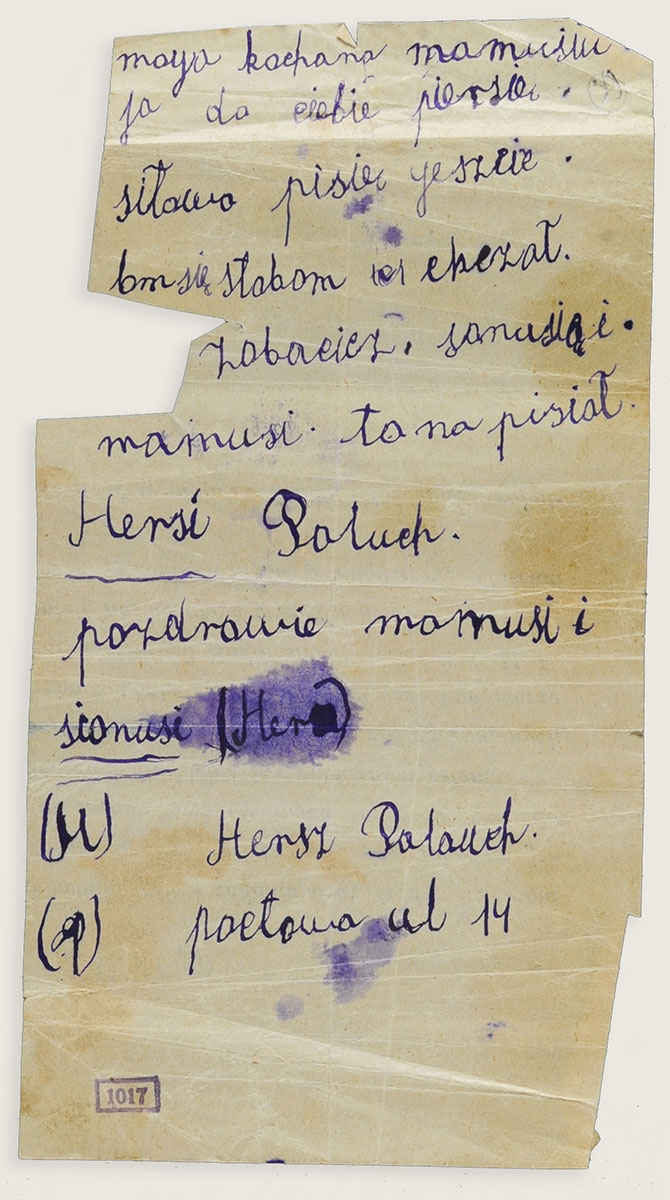 moya kochana mamusiu
ja do ciebie piersie.
siławo pisię yeszcie.
bm się słabom chczał.
zobacicz. sanusią i.
mamusi. to na pisiał.
Hersi Paluch.
pozdrowie mamusi i
sionusi (Hera)
(H) Hersz Palauch.
(P) poctowa ul 14
1017